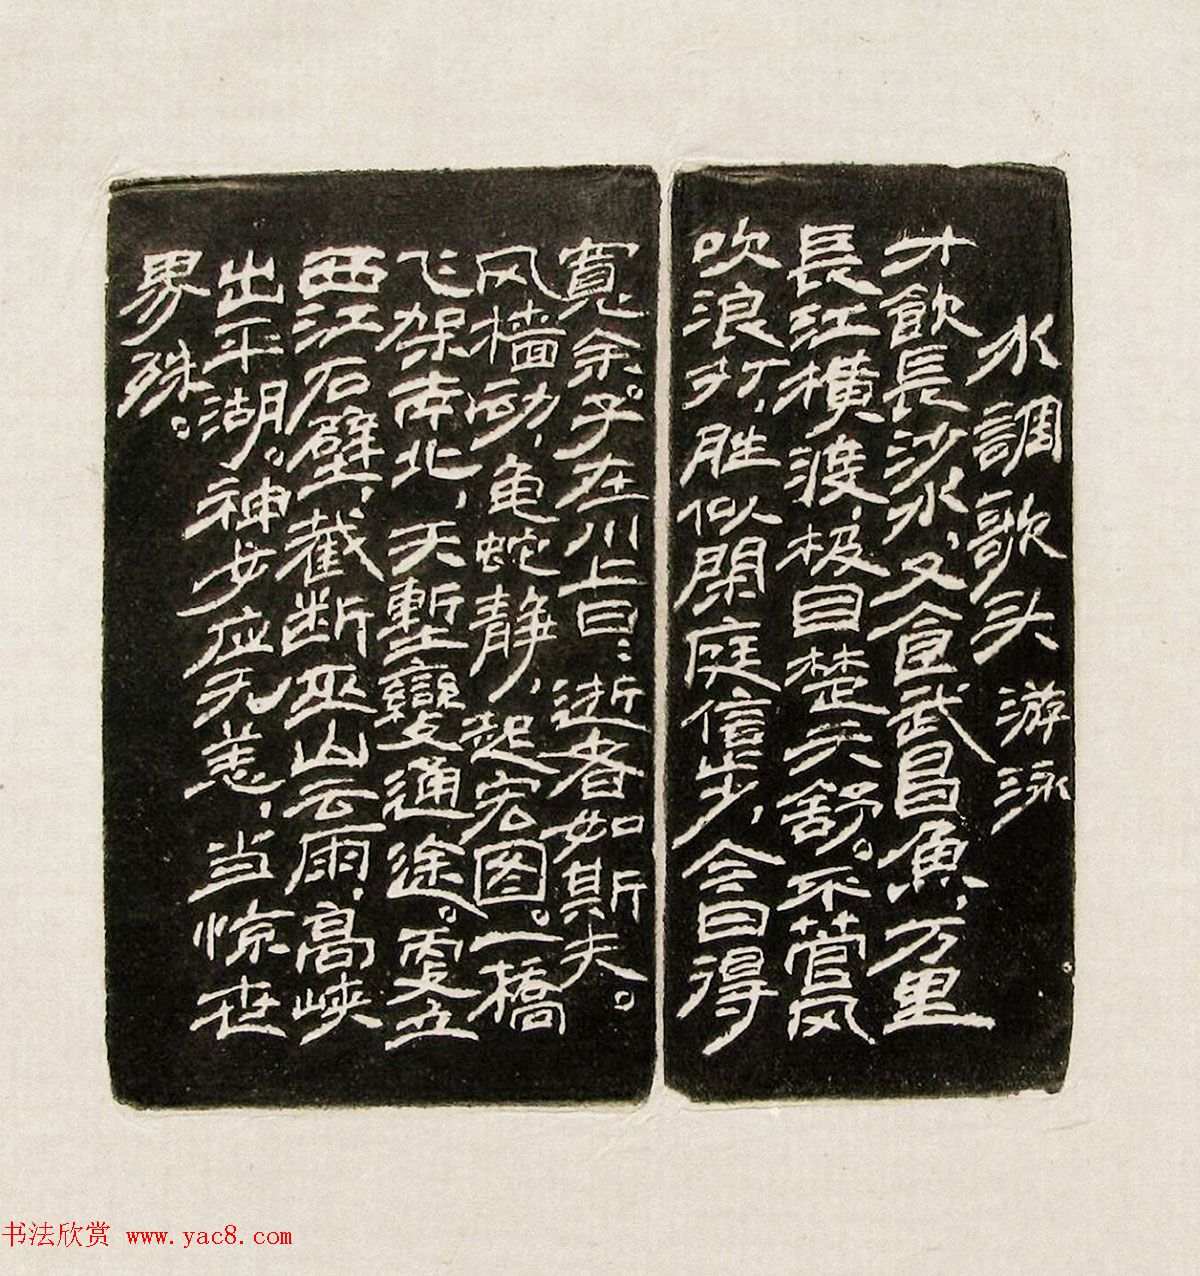 水調歌头 游泳
才飲長沙水,又食武昌魚,万里
長江橫渡,极目楚天舒。不管风
吹浪打,胜似閑庭信步,今日得
寬余。子在川上曰:逝者如斯夫。
风樯动,龟蛇静,起宏图。一橋
飞架南北,天塹變通途。更立
西江石壁,截断巫山云雨,高峡
出平湖。神女应无恙,当惊世
界殊。
书法欣赏 www.yac8.com